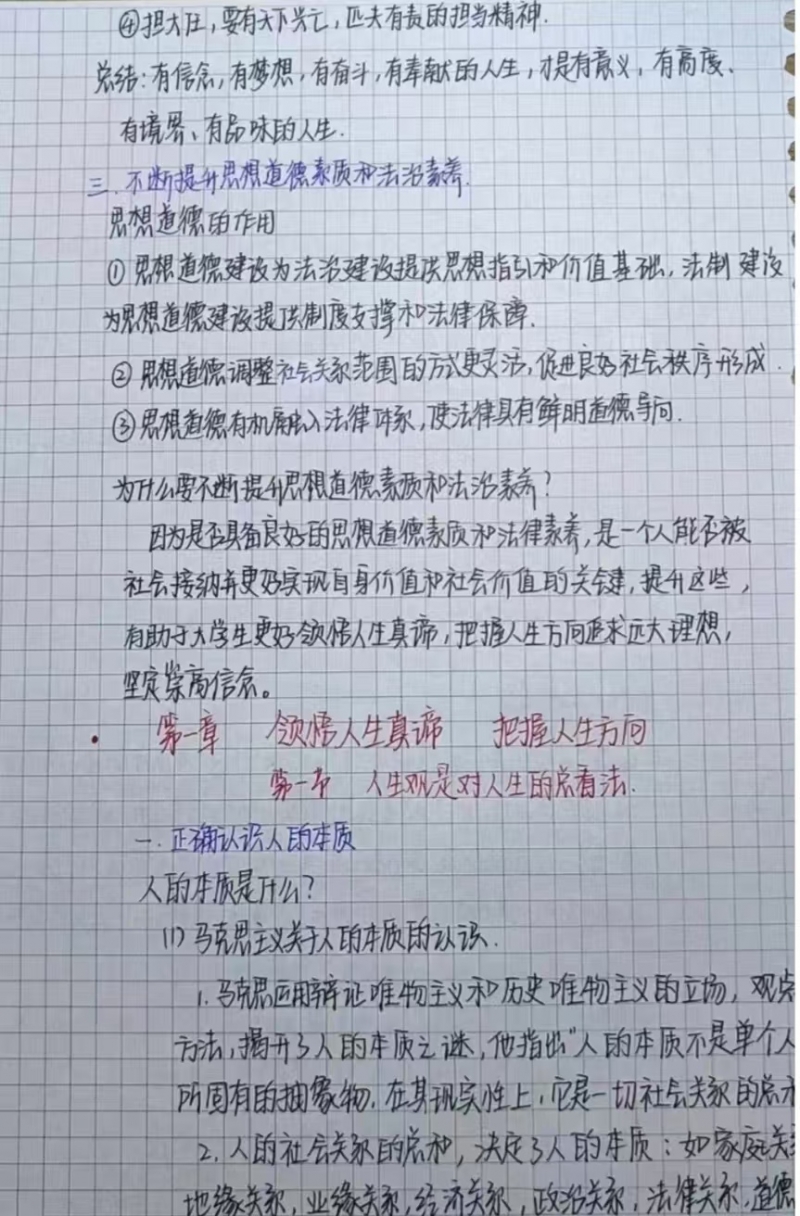 ④担大任,要有天下兴亡,匹夫有责的担当精神.
总结:有信念,有梦想,有奋斗,有奉献的人生,才是有意义,有高度、
有境界、有品味的人生.
三.不断提升思想道德素质和法治素养.
思想道德的作用
①思想道德建设为法治建设提供思想指引和价值基础,法制建设
为思想道德建设提供制度支撑和法律保障.
②思想道德调整社会关系范围的方式更灵活,促进良好社会秩序形成.
③思想道德有机融入法律体系,使法律具有鲜明道德导向.
为什么要不断提升思想道德素质和法治素养?
因为是否具备良好的思想道德素质和法律素养,是一个人能否被
社会接纳并更好实现自身价值和社会价值的关键,提升这些,
有助于大学生更好领悟人生真谛,把握人生方向追求远大理想,
坚定崇高信念。
第一章 领悟人生真谛 把握人生方向
第一节 人生观是对人生的总看法.
一.正确认识人的本质
人的本质是什么?
(1)马克思主义关于人的本质的认识.
1.马克思运用辩证唯物主义和历史唯物主义的立场,观点
方法,揭开了人的本质之谜,他指出"人的本质不是单个人
所固有的抽象物.在其现实性上,它是一切社会关系的总
2.人的社会关系的总和,决定了人的本质:如家庭关
地缘关系,业缘关系,经济关系,政治关系,法律关系,道德